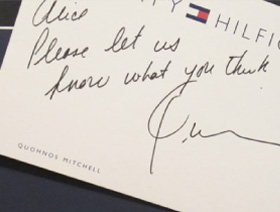 Alice
TY HILFIG
Please let us
know what you think
QUOHNOS MITCHELL